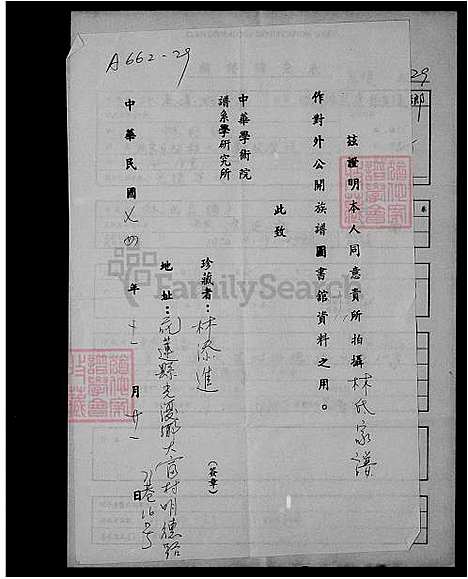 A662-29
29
鄉
茲證明本人同意貴所拍攝林氏家譜
作對外公開族譜圖書館資料之用。
此致
中華學術院
譜系學研究所
珍藏者：林添進
(簽章)
地址：花蓮縣光復鄉大富村明德路
巷16号
中華民國 年十一月廿一日
FamilySearch